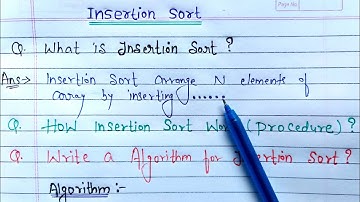 Insertion Sort
Q. What is Insertion Sort ?
Ans:→ Insertion Sort arrange N elements of
array by inserting ......
Q. How Insertion Sort Work (procedure) ?
Q. Write a Algorithm for Insertion Sort ?
Algorithm :-